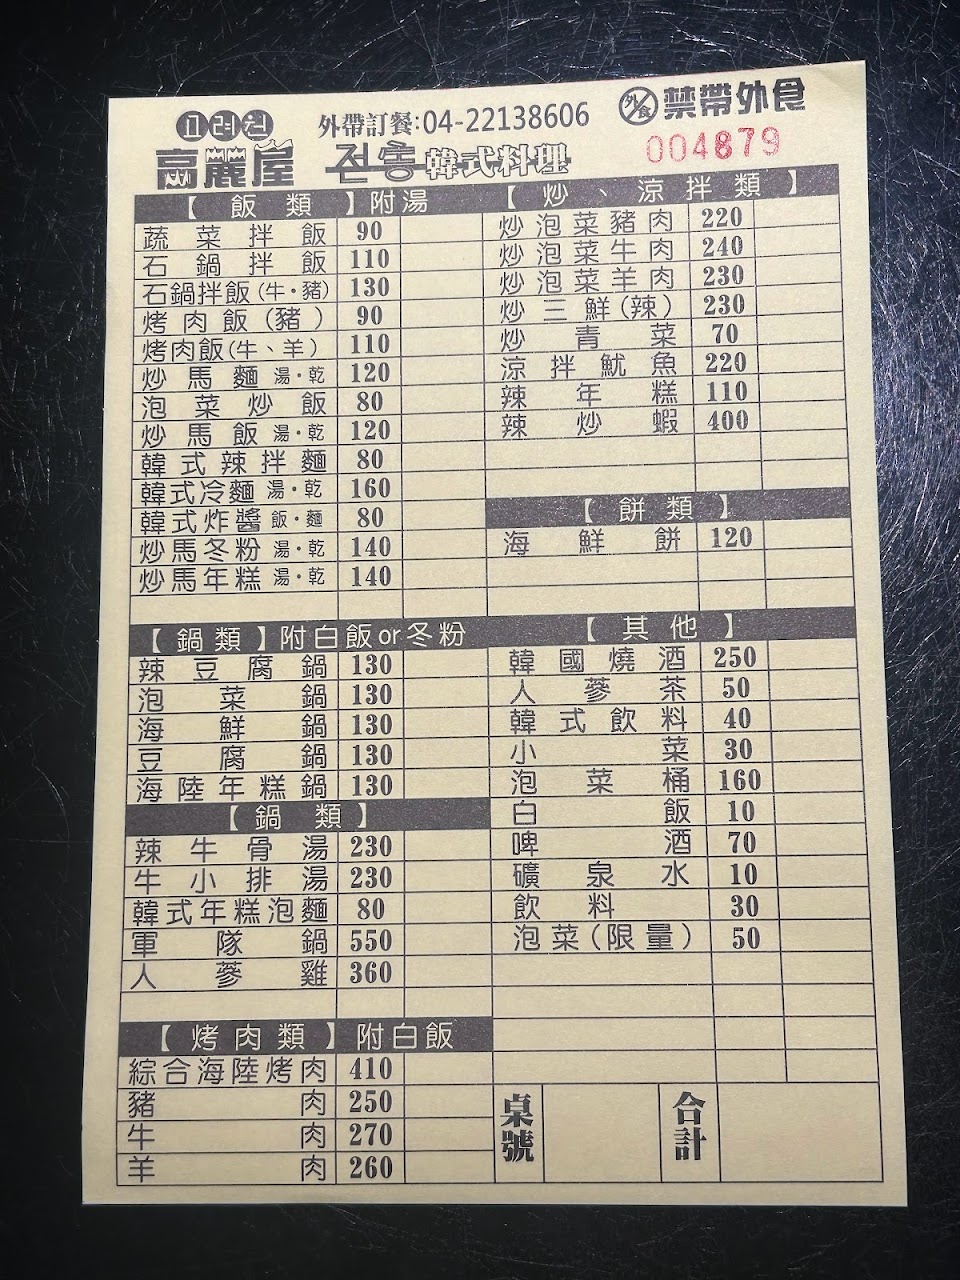 고려원
高麗屋
外帶訂餐:04-22138606
전통韓式料理
外食 禁帶外食
004879
【飯類】附湯
蔬菜拌飯 90
石鍋拌飯 110
石鍋拌飯(牛・豬) 130
烤肉飯(豬) 90
烤肉飯(牛、羊) 110
炒馬麵 湯・乾 120
泡菜炒飯 80
炒馬飯 湯・乾 120
韓式辣拌麵 80
韓式冷麵 湯・乾 160
韓式炸醬 飯・麵 80
炒馬冬粉 湯・乾 140
炒馬年糕 湯・乾 140
【鍋類】附白飯or冬粉
辣豆腐鍋 130
泡菜鍋 130
海鮮鍋 130
豆腐鍋 130
海陸年糕鍋 130
【鍋類】
辣牛骨湯 230
牛小排湯 230
韓式年糕泡麵 80
軍隊鍋 550
人蔘雞 360
【烤肉類】附白飯
綜合海陸烤肉 410
豬肉 250
牛肉 270
羊肉 260
【炒、涼拌類】
炒泡菜豬肉 220
炒泡菜牛肉 240
炒泡菜羊肉 230
炒三鮮(辣) 230
炒青菜 70
涼拌魷魚 220
辣年糕 110
辣炒蝦 400
【餅類】
海鮮餅 120
【其他】
韓國燒酒 250
人蔘茶 50
韓式飲料 40
小菜 30
泡菜桶 160
白飯 10
啤酒 70
礦泉水 10
飲料 30
泡菜(限量) 50
桌號
合計